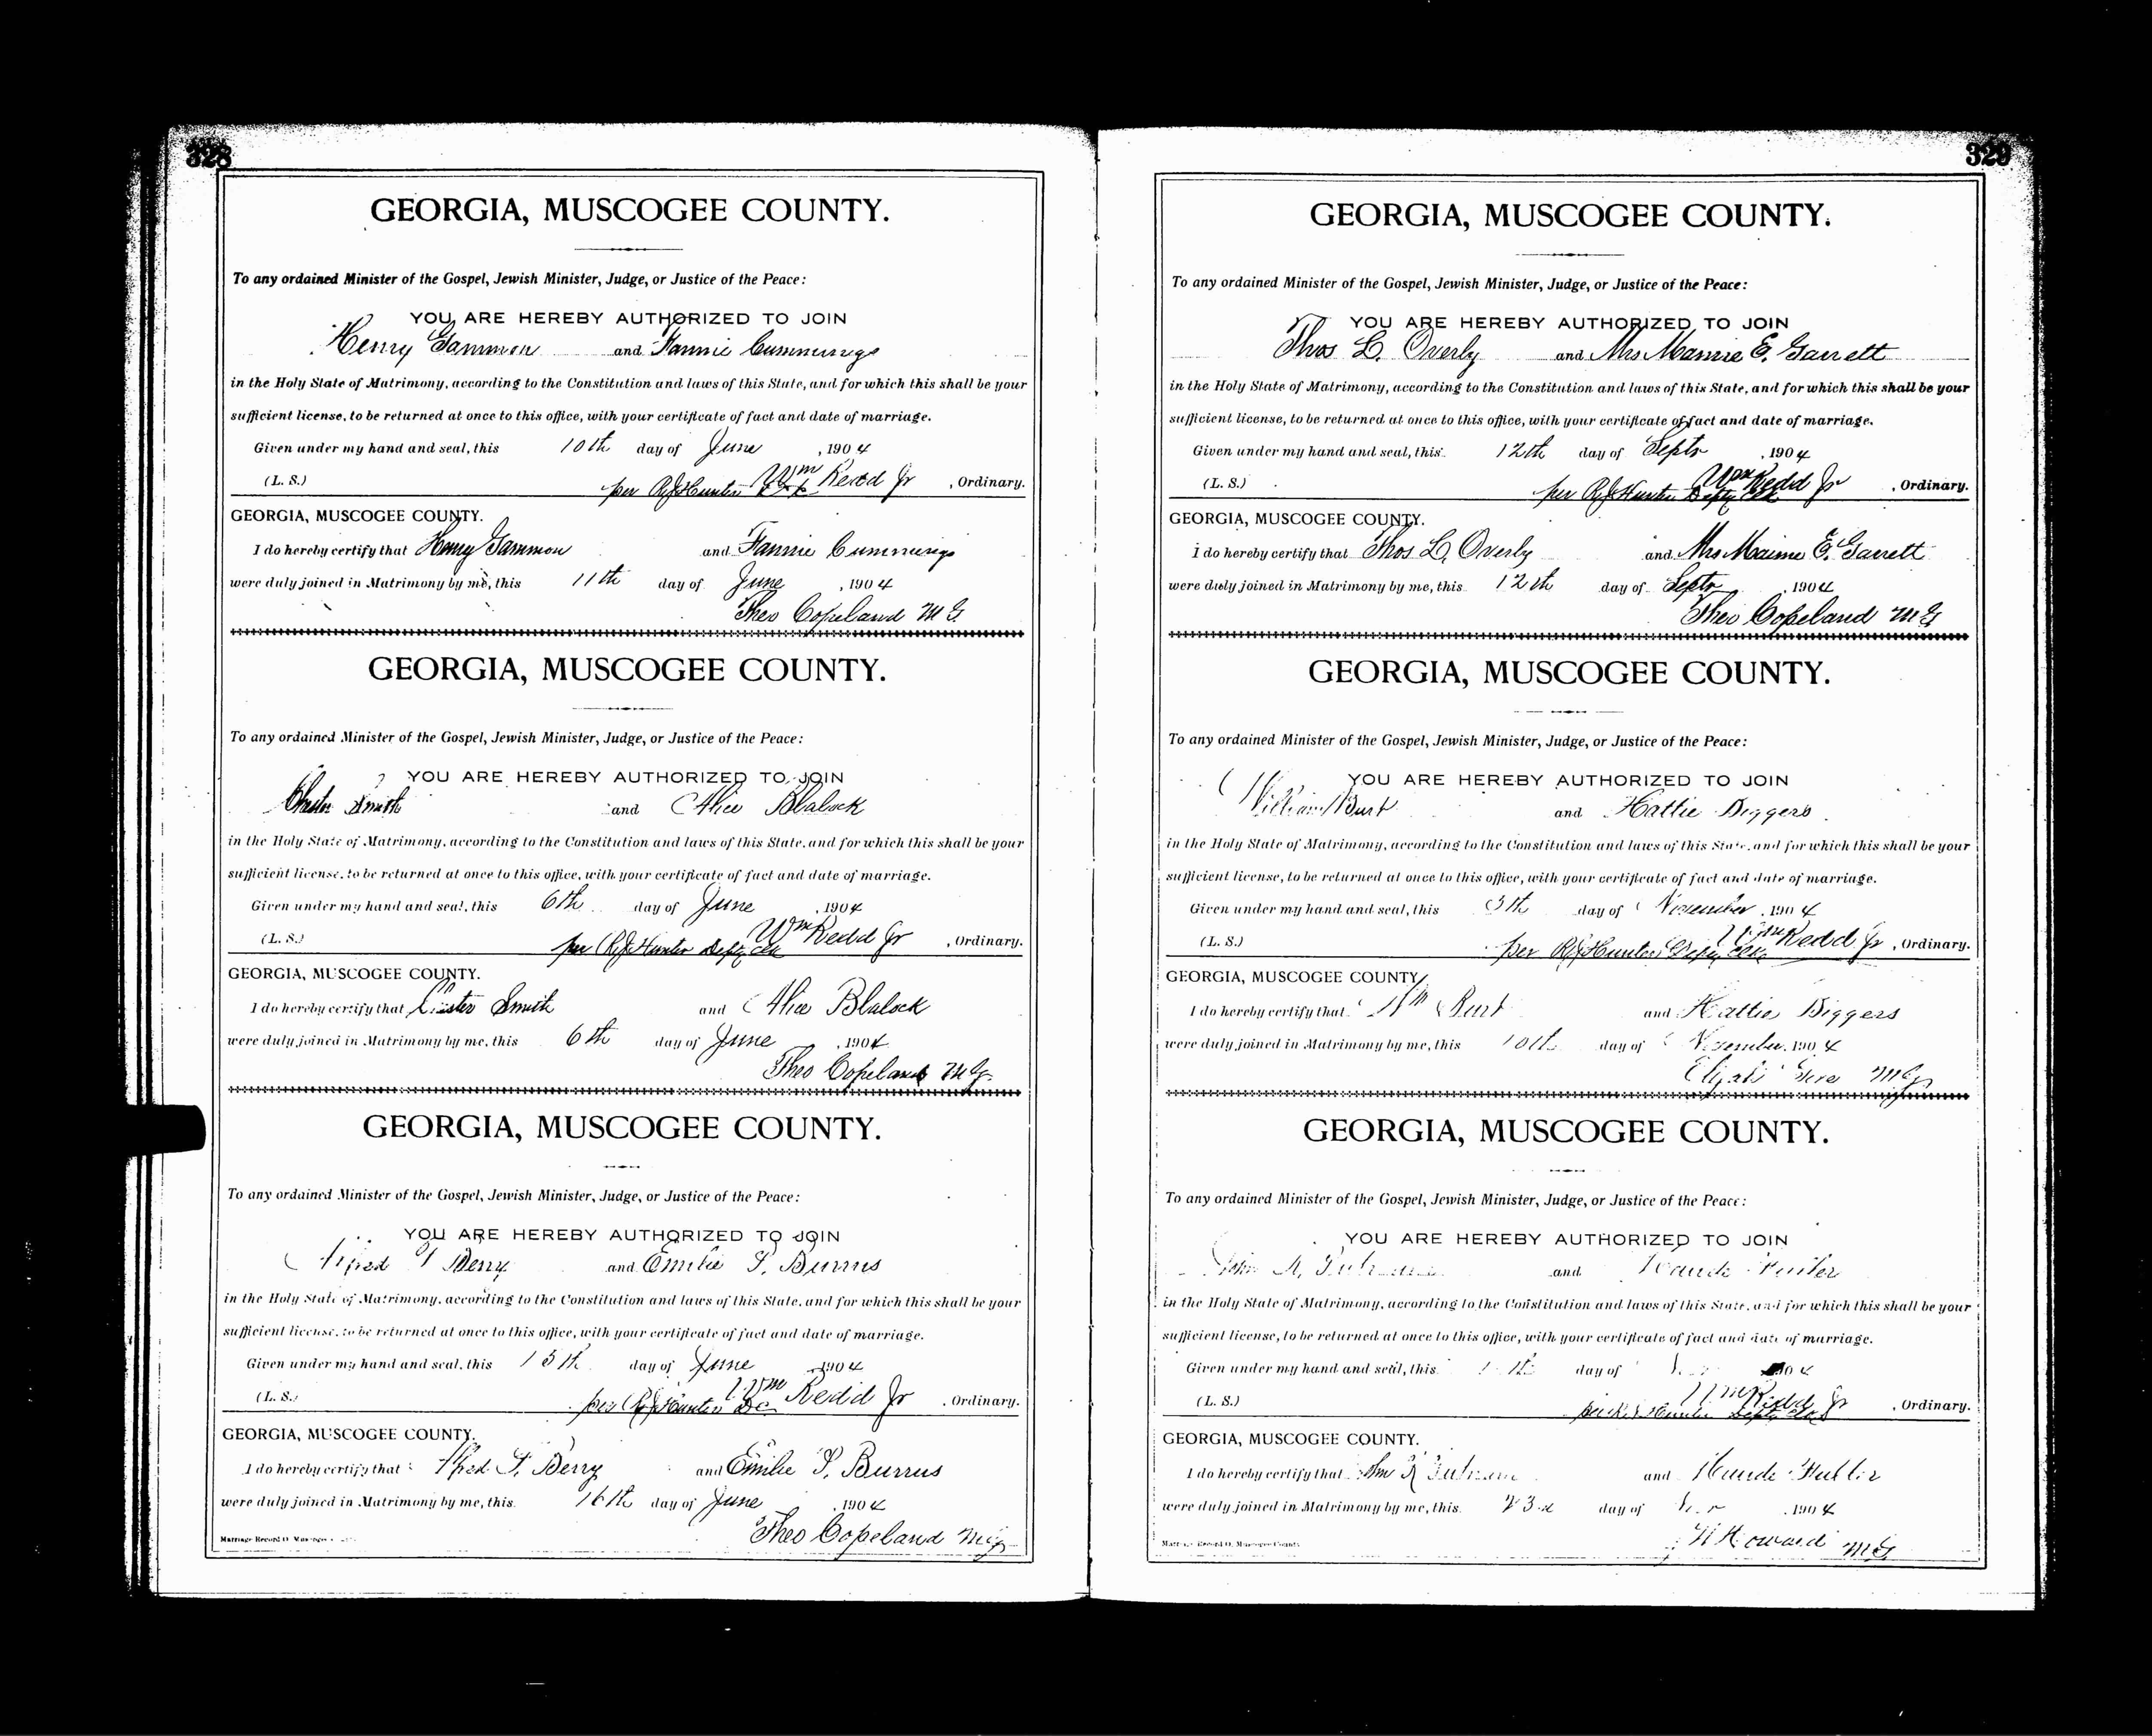 328
GEORGIA, MUSCOGEE COUNTY.
To any ordained Minister of the Gospel, Jewish Minister, Judge, or Justice of the Peace:
YOU ARE HEREBY AUTHORIZED TO JOIN
Henry Gammon and Fannie Cummings
in the Holy State of Matrimony, according to the Constitution and laws of this State, and for which this shall be your
sufficient license, to be returned at once to this office, with your certificate of fact and date of marriage.
Given under my hand and seal, this 10th day of June, 1904
(L. S.) per R J Hunter Wm Redd Jr, Ordinary.
GEORGIA, MUSCOGEE COUNTY.
I do hereby certify that Henry Gammon and Fannie Cummings
were duly joined in Matrimony by me, this 11th day of June, 1904
Theo Copeland M G
GEORGIA, MUSCOGEE COUNTY.
To any ordained Minister of the Gospel, Jewish Minister, Judge, or Justice of the Peace:
YOU ARE HEREBY AUTHORIZED TO JOIN
Smith and Alice Blalock
in the Holy State of Matrimony, according to the Constitution and laws of this State, and for which this shall be your
sufficient license, to be returned at once to this office, with your certificate of fact and date of marriage.
Given under my hand and seal, this 6th day of June, 1904
(L. S.) per R J Hunter Depty Clk Wm Redd Jr, Ordinary.
GEORGIA, MUSCOGEE COUNTY.
I do hereby certify that Smith and Alice Blalock
were duly joined in Matrimony by me, this 6th day of June, 1904
Theo Copeland M G
GEORGIA, MUSCOGEE COUNTY.
To any ordained Minister of the Gospel, Jewish Minister, Judge, or Justice of the Peace:
YOU ARE HEREBY AUTHORIZED TO JOIN
Berry and Emilie P. Burrus
in the Holy State of Matrimony, according to the Constitution and laws of this State, and for which this shall be your
sufficient license, to be returned at once to this office, with your certificate of fact and date of marriage.
Given under my hand and seal, this 15th day of June, 1904
(L. S.) per R J Hunter D C Wm Redd Jr, Ordinary.
GEORGIA, MUSCOGEE COUNTY.
I do hereby certify that Berry and Emilie P. Burrus
were duly joined in Matrimony by me, this 16th day of June, 1904
Theo Copeland M G
Marriage Record O
329
GEORGIA, MUSCOGEE COUNTY.
To any ordained Minister of the Gospel, Jewish Minister, Judge, or Justice of the Peace:
YOU ARE HEREBY AUTHORIZED TO JOIN
Thos L. Overly and Mrs Mamie E. Garrett
in the Holy State of Matrimony, according to the Constitution and laws of this State, and for which this shall be your
sufficient license, to be returned at once to this office, with your certificate of fact and date of marriage.
Given under my hand and seal, this 12th day of Septr, 1904
(L. S.) per R J Hunter Depty Clk Wm Redd Jr, Ordinary.
GEORGIA, MUSCOGEE COUNTY.
I do hereby certify that Thos L. Overly and Mrs Mamie E. Garrett
were duly joined in Matrimony by me, this 12th day of Septr, 1904
Theo Copeland M G
GEORGIA, MUSCOGEE COUNTY.
To any ordained Minister of the Gospel, Jewish Minister, Judge, or Justice of the Peace:
YOU ARE HEREBY AUTHORIZED TO JOIN
William Burt and Hattie Biggers
in the Holy State of Matrimony, according to the Constitution and laws of this State, and for which this shall be your
sufficient license, to be returned at once to this office, with your certificate of fact and date of marriage.
Given under my hand and seal, this day of November, 1904
(L. S.) per R J Hunter Depty Clk Wm Redd Jr, Ordinary.
GEORGIA, MUSCOGEE COUNTY.
I do hereby certify that Wm Burt and Hattie Biggers
were duly joined in Matrimony by me, this 10th day of November, 1904
M G
GEORGIA, MUSCOGEE COUNTY.
To any ordained Minister of the Gospel, Jewish Minister, Judge, or Justice of the Peace:
YOU ARE HEREBY AUTHORIZED TO JOIN
John and
in the Holy State of Matrimony, according to the Constitution and laws of this State, and for which this shall be your
sufficient license, to be returned at once to this office, with your certificate of fact and date of marriage.
Given under my hand and seal, this day of 1904
(L. S.) Hunter Depty Clk Wm Redd Jr, Ordinary.
GEORGIA, MUSCOGEE COUNTY.
I do hereby certify that and
were duly joined in Matrimony by me, this 23d day of, 1904
Howard M G
Record O, Muscogee County